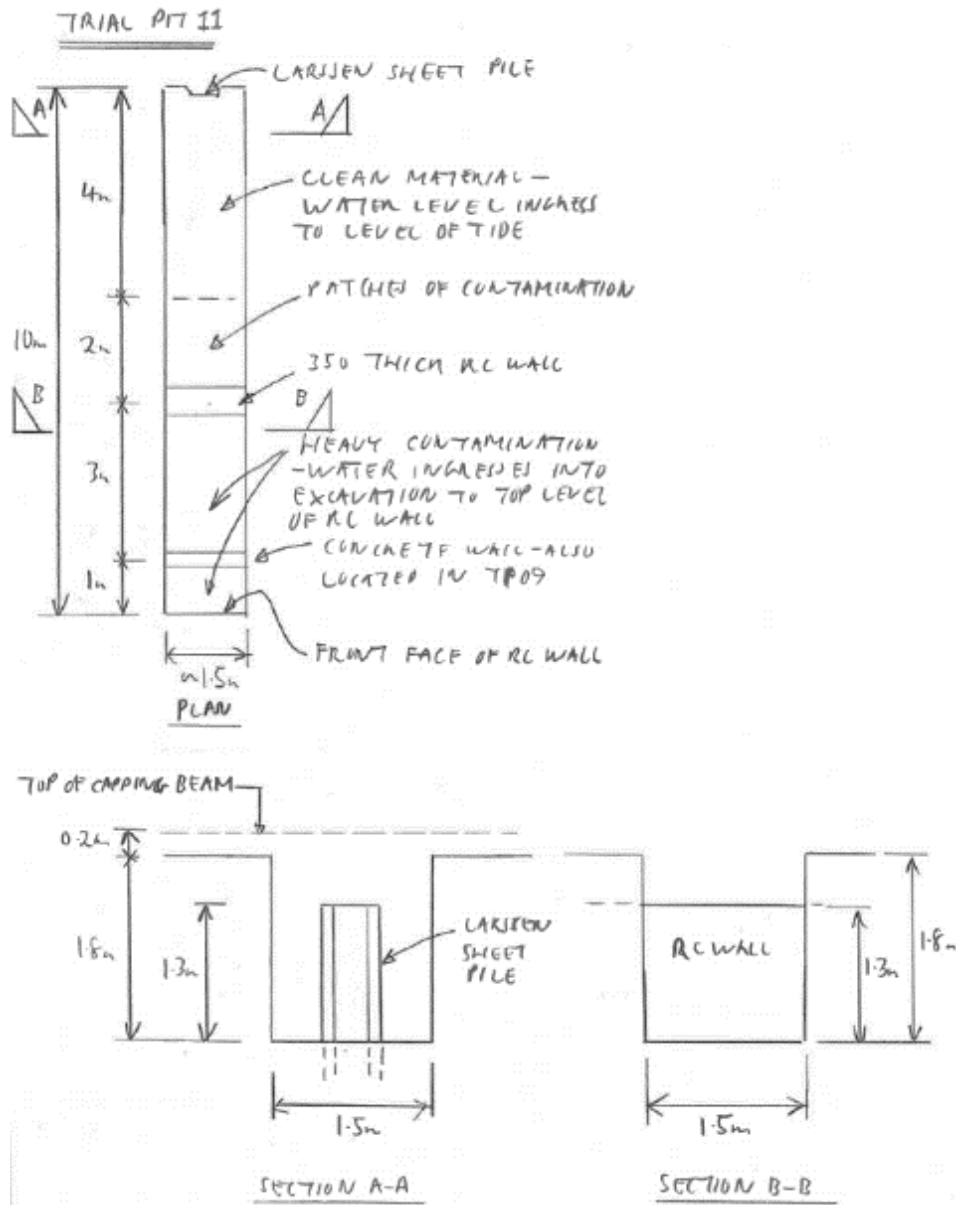 TRIAL PIT 11
LARSSEN SHEET PILE
A
A
4m
CLEAN MATERIAL -
WATER LEVEL INGRESS
TO LEVEL OF TIDE
PATCHES OF CONTAMINATION
10m
2m
350 THICK RC WALL
B
B
HEAVY CONTAMINATION
-WATER INGRESSES INTO
EXCAVATION TO TOP LEVEL
OF RC WALL
3m
CONCRETE WALL-ALSO
LOCATED IN TP09
1m
FRONT FACE OF RC WALL
~1.5m
PLAN
TOP OF CAPPING BEAM
0.2m
1.8m
1.3m
LARSSEN
SHEET
PILE
RC WALL
1.3m
1.8m
1.5m
1.5m
SECTION A-A
SECTION B-B